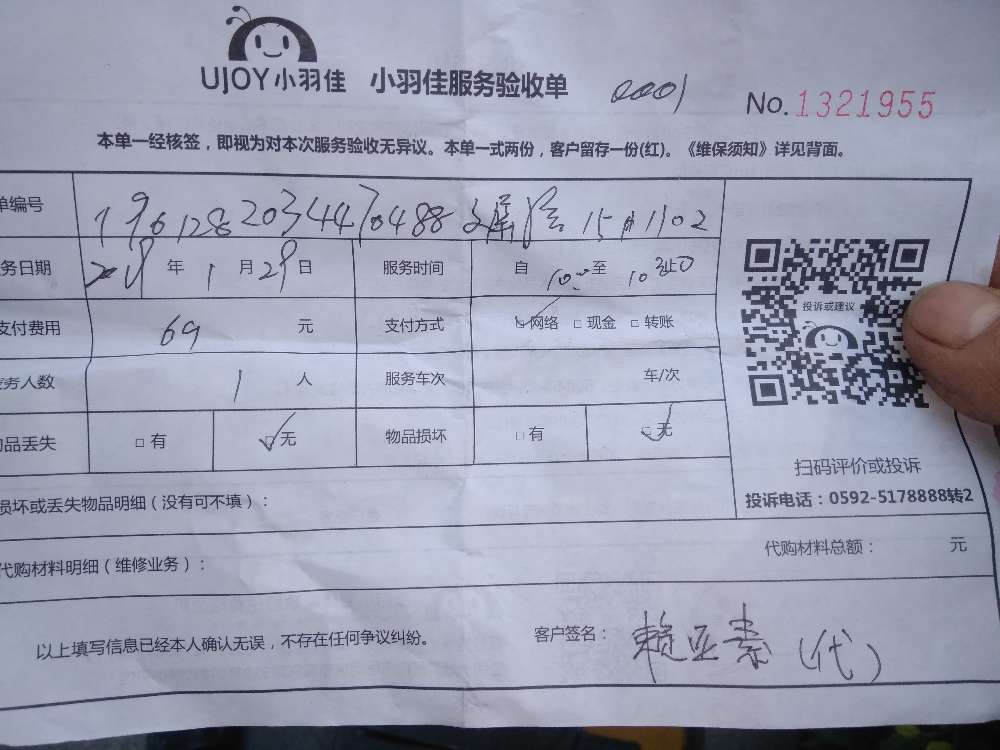 UJOY小羽佳 小羽佳服务验收单 0001 No.1321955
本单一经核签，即视为对本次服务验收无异议。本单一式两份，客户留存一份(红)。《维保须知》详见背面。
单编号 1961282034470488 15#1102
务日期 2019年1月29日 服务时间 自10:00至10:30止
支付费用 69元 支付方式 ☑网络 □现金 □转账
务人数 1人 服务车次 车/次
品丢失 □有 ☑无 物品损坏 □有 ☑无
投诉或建议
扫码评价或投诉
投诉电话：0592-5178888转2
损坏或丢失物品明细（没有可不填）：
代购材料明细（维修业务）： 代购材料总额： 元
以上填写信息已经本人确认无误，不存在任何争议纠纷。 客户签名：赖亚素（代）